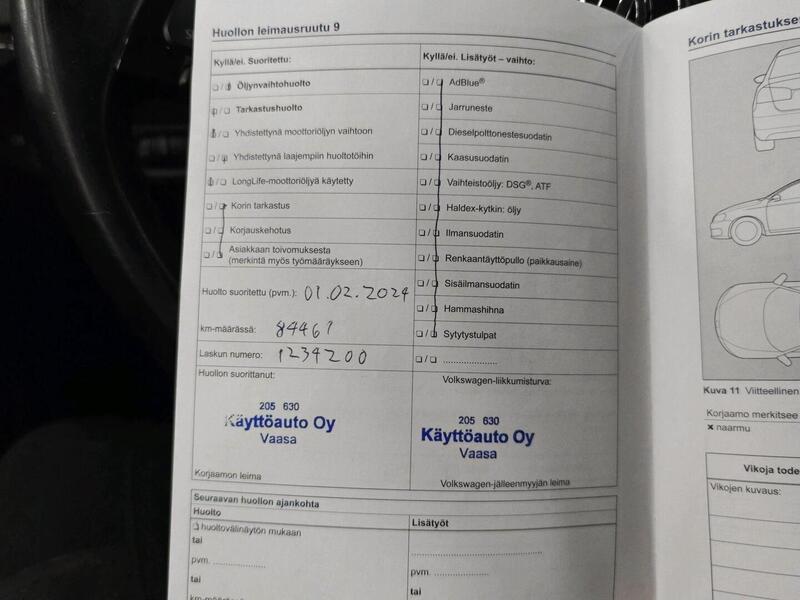 Huollon leimausruutu 9
Kyllä/ei. Suoritettu:
❏/❏ Öljynvaihtohuolto
❏/❏ Tarkastushuolto
❏/❏ Yhdistettynä moottoriöljyn vaihtoon
❏/❏ Yhdistettynä laajempiin huoltotöihin
❏/❏ LongLife-moottoriöljyä käytetty
❏/❏ Korin tarkastus
❏/❏ Korjauskehotus
❏/❏ Asiakkaan toivomuksesta
(merkintä myös työmääräykseen)
Huolto suoritettu (pvm.): 01.02.2024
km-määrässä: 84461
Laskun numero: 1234200
Huollon suorittanut:
205 630
Käyttöauto Oy
Vaasa
Korjaamon leima
Kyllä/ei. Lisätyöt – vaihto:
❏/❏ AdBlue®
❏/❏ Jarruneste
❏/❏ Dieselpolttonestesuodatin
❏/❏ Kaasusuodatin
❏/❏ Vaihteistoöljy: DSG®, ATF
❏/❏ Haldex-kytkin: öljy
❏/❏ Ilmansuodatin
❏/❏ Renkaantäyttöpullo (paikkausaine)
❏/❏ Sisäilmansuodatin
❏/❏ Hammashihna
❏/❏ Sytytystulpat
❏/❏ ....................
Volkswagen-liikkumisturva:
205 630
Käyttöauto Oy
Vaasa
Volkswagen-jälleenmyyjän leima
Seuraavan huollon ajankohta
Huolto
❏ huoltovälinäytön mukaan
tai
pvm. ....................
tai
Lisätyöt
........................................
pvm. ....................
tai
Korin tarkastukse
Kuva 11 Viitteellinen
Korjaamo merkitsee
× naarmu
Vikoja tode
Vikojen kuvaus: